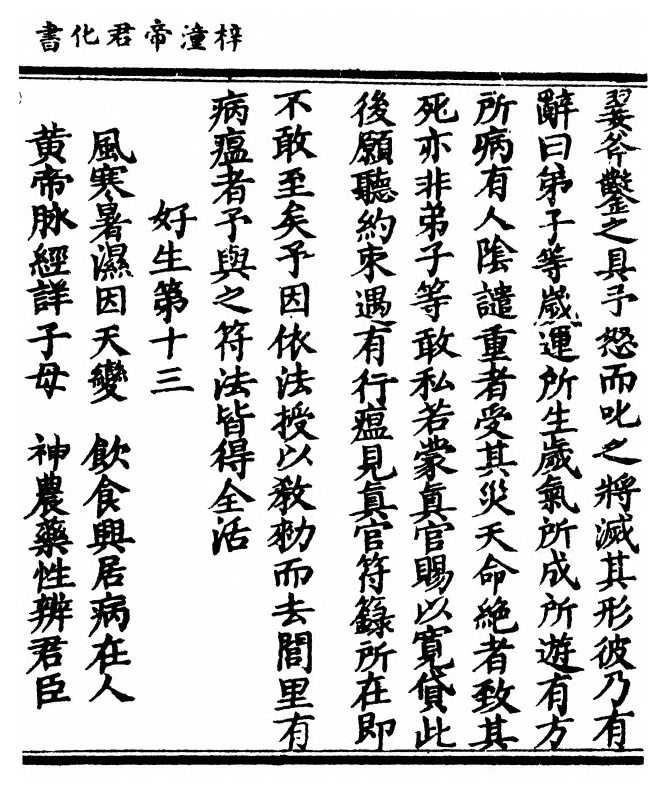 梓潼帝君化書
翣斧鑿之具予怒而叱之將滅其形彼乃有
辭曰弟子等歲運所生歲氣所成所遊有方
所病有人陰譴重者受其災天命絶者致其
死亦非弟子等敢私若蒙眞官賜以寛貸此
後願聽約束遇有行瘟見眞官符籙所在即
不敢至矣予因依法授以教勑而去閭里有
病瘟者予與之符法皆得全活
好生第十三
風寒暑濕因天變　飲食興居病在人
黃帝脉經詳子母　神農藥性辨君臣